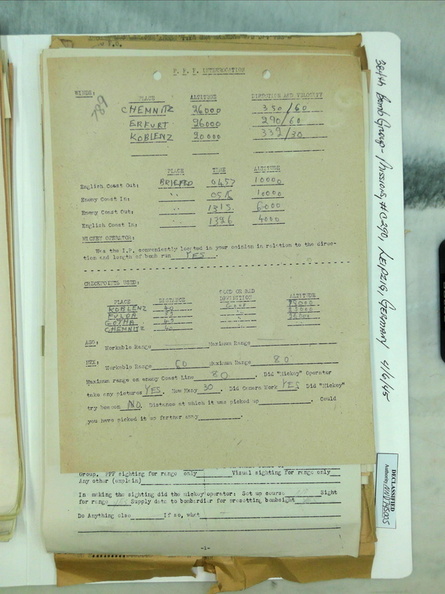 P. F. F. INTERROGATION
WINDS:
PLACE ALTITUDE DIRECTION AND VELOCITY
CHEMNITZ 26000 350/60
ERFURT 26000 290/60
KOBLENZ 20000 332/30
PLACE TIME ALTITUDE
English Coast Out: BRIEFED 0457 10000
Enemy Coast In:
Enemy Coast Out: 1313
English Coast In: 1336 4000
MICKEY OPERATOR:
Was the I.P. conveniently located in your opinion in relation to the direc-
tion and length of bomb run YES.
CHECKPOINTS USED:
GOOD OR BAD
PLACE DISTANCE DEFINITION ALTITUDE
KOBLENZ
FULDA
GOTHA
CHEMNITZ
Workable Range Maximum Range
Workable Range 60 Maximum Range 80
Maximum range on enemy Coast Line 80. Did "Mickey" Operator
take any pictures YES. How Many 30. Did Camera Work YES. Did "Mickey"
try Beacon NO. Distance at which it was picked up . Could
you have picked it up further away .
Group, PFF sighting for range only Visual sighting for range only
Any other (explain)
In making the sighting did the mickey operator: Set up course Sight
for range Supply data to bombardier for presetting bombsight
Do Anything else If so, what
-1-
384th Bomb Group - Mission # 290, Leipzig, Germany 4/6/45
DECLASSIFIED
Authority NND 745005